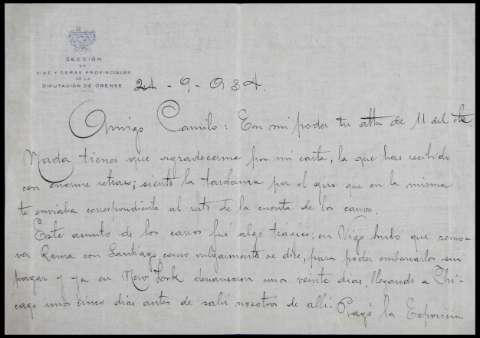 SECCIÓN
DE
VIAS Y OBRAS PROVINCIALES
DE LA
DIPUTACIÓN DE ORENSE
24 - 9 - 934.
Amigo Camilo: En mi poder tu atta de 11 del
Nada tienes que agradecerme por mi carta, la que has recibido
con enorme retraso; siento la tardanza por el giro que en la misma
te enviaba correspondiente al resto de la cuenta de los carros.
Este asunto de los carros fué algo trágico; en Vigo hubo que remo-
ver Roma con Santiago como vulgarmente se dice, para poder embarcarlos sin
pagar y ya en New York durmieron unos veinte días llegando a Chi-
cago unos cinco días antes de salir nosotros de allí. Pagó la Exposición